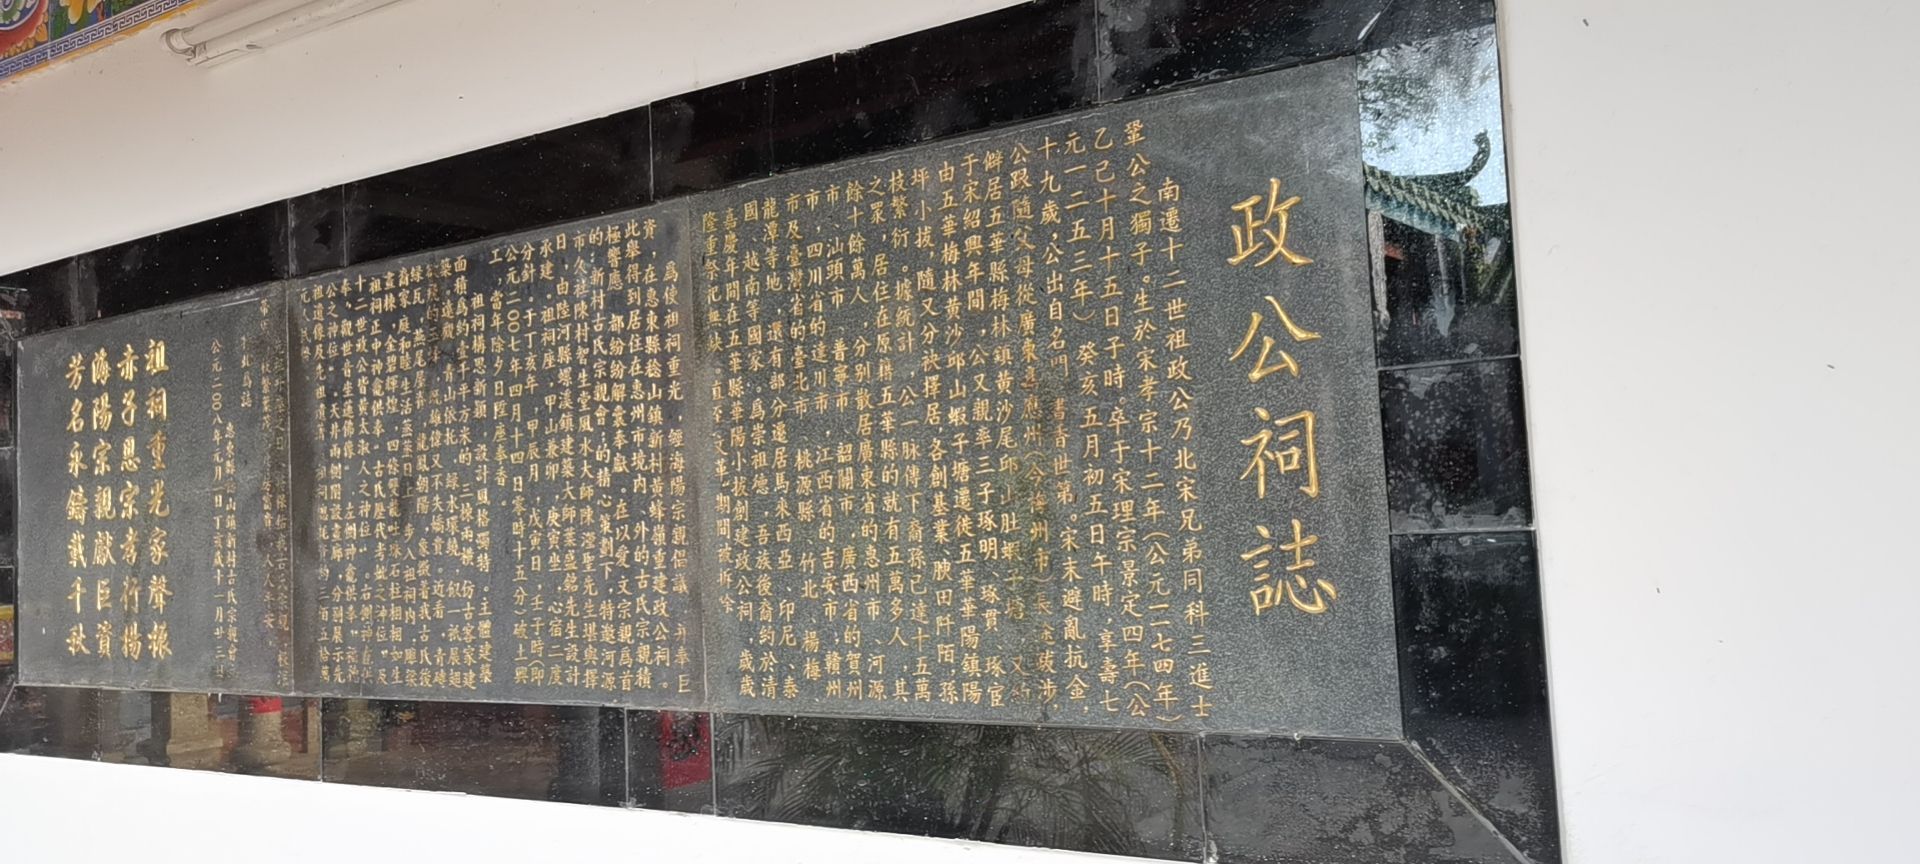 政公祠誌
南遷十二世祖政公乃北宋兄弟同科三進士
鞏公之獨子。生於宋孝宗十二年（公元一一七四年）
乙己十月十五日子時。卒于宋理宗景定四年（公
元一二五三年）癸亥五月初五日午時，享壽七
十九歲，公出自名門，書香世第。宋末避亂抗金，
公跟隨父母從廣東嘉應州（今梅州市）長途跋涉，
僻居五華縣梅林鎮黃沙尾邱山肚蝦子塘，又約
于宋紹興年間，公又親率三子琢明、琢貫、琢官
由五華梅林黃沙邱山蝦子塘還徙五華華陽鎮陽
坪小拔，隨又分袂擇居，各創基業、腴田阡陌，孫
枝繁衍。據統計，公一脉傳下裔孫已達十五萬
之眾，居住在原耕五華縣的就有五萬多人，其
餘十餘萬人，分別散居廣東省的惠州市、河源
市、汕頭市、普寧市、韶關市，廣西省的賀州
市，四川省的達川市，江西省的吉安市，贛州
市及臺灣省的臺北市、桃源縣、竹北、楊梅、
龍潭等地，還有部分遷居馬來西亞、印尼、泰
國、越南等國家。爲崇祖德，吾族後裔約於清
嘉慶年間在五華縣華陽小拔創建政公祠，歲歲
隆重祭祀無缺。直至"文革"期間被拆除。
爲使祖祠重光，經海陽宗親倡議，并奉巨
資，在惠東縣稔山鎮新村黃蜂嶺重建政公祠。
此舉得到居住在惠州市境内、外的古氏宗親積
極響應，都紛紛解囊奉獻。在以愛文宗親爲首
的"新村古氏宗親會"的精心策劃下，特邀河源
市久社陳村智生堂風水大師陳深聖先生堪與擇
日，由陸河縣螺溪鎮建築大師葉盛銘先生設計
承建。祖祠座，甲山兼卯，庚寅坐，心宿二度
分針。于丁亥年，甲辰月，戊寅日，壬子時（即
公元二00七年四月十四日零時十五分）破土興
工，當年除夕日陞座奉香。
祖祠構思新穎，設計風格獨特。主體建築
面積爲約壹千平方米的三棟兩横仿古客家建
築，遠觀，青山依托，綠水環繞，似一祇展翅
綠瓦，燕尾厝脊，龍鳳朝陽，象徵着我古氏後
裔家庭和睦生活蒸蒸日上。步入祖祠内，雕梁
畫棟，金碧輝煌，四條雙龍吐珠石柱栩栩如生
祖祠正中神龕供奉"古氏歷代考妣之神位"及
十二世政公皆黃太淑人之神位"。右側神龕供
奉，觀世音坐蓮佛像。左側神龕供奉"福神
公之神位"。天井兩側閣設畫廊，分別展示先
公元二00八年元月一日丁亥歲十一月廿三日
祖祠重光家聲振
赤子恩宗孝行揚
海陽宗親獻巨資
芳名永鑄載千秋